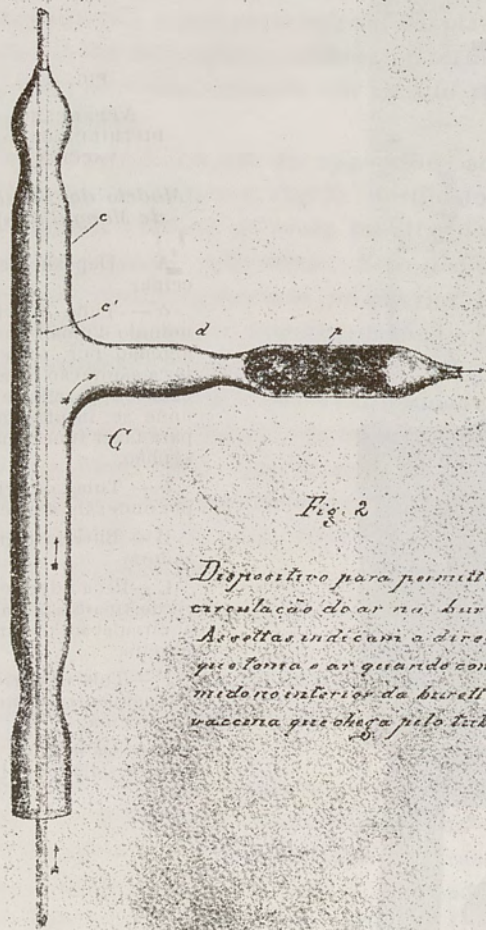 c
c'
d
p
C
Fig. 2
Dispositivo para permitt
circulação do ar na bur
As settas indicam a dire
que toma o ar quando com
mido no interior da burett
vaccina que chega pelo tub